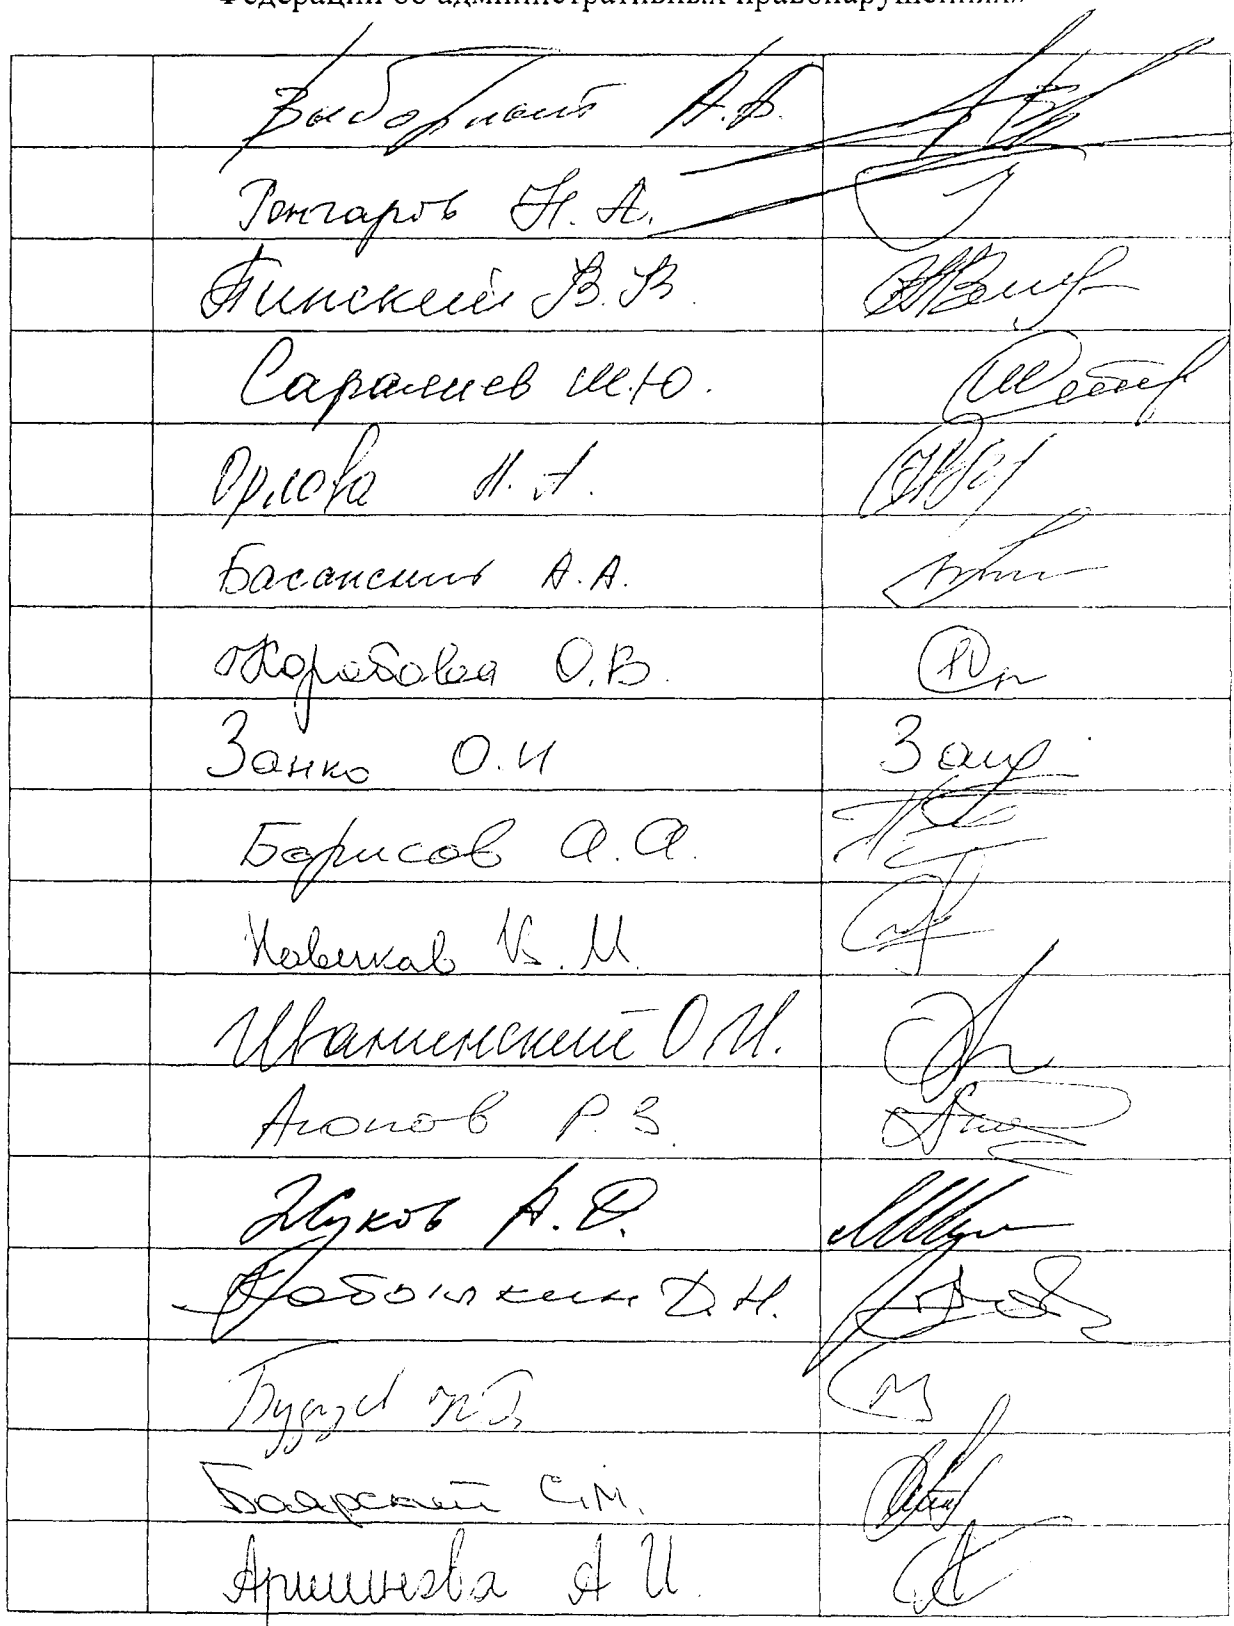 Федерации об административных правонарушениях»
Выборный А.Б.
Гончаров Н.А.
Пинский В.В.
Саралиев Ш.Ю.
Орлова Н.А.
Басанский А.А.
Коробова О.В.
Занко О.И
Борисов А.А.
Новиков В.М.
Иванинский О.И.
Агапов Р.В.
Жуков А.Д.
Кобылкин Д.Н.
С.М.
Боярский
Аршинова А И.